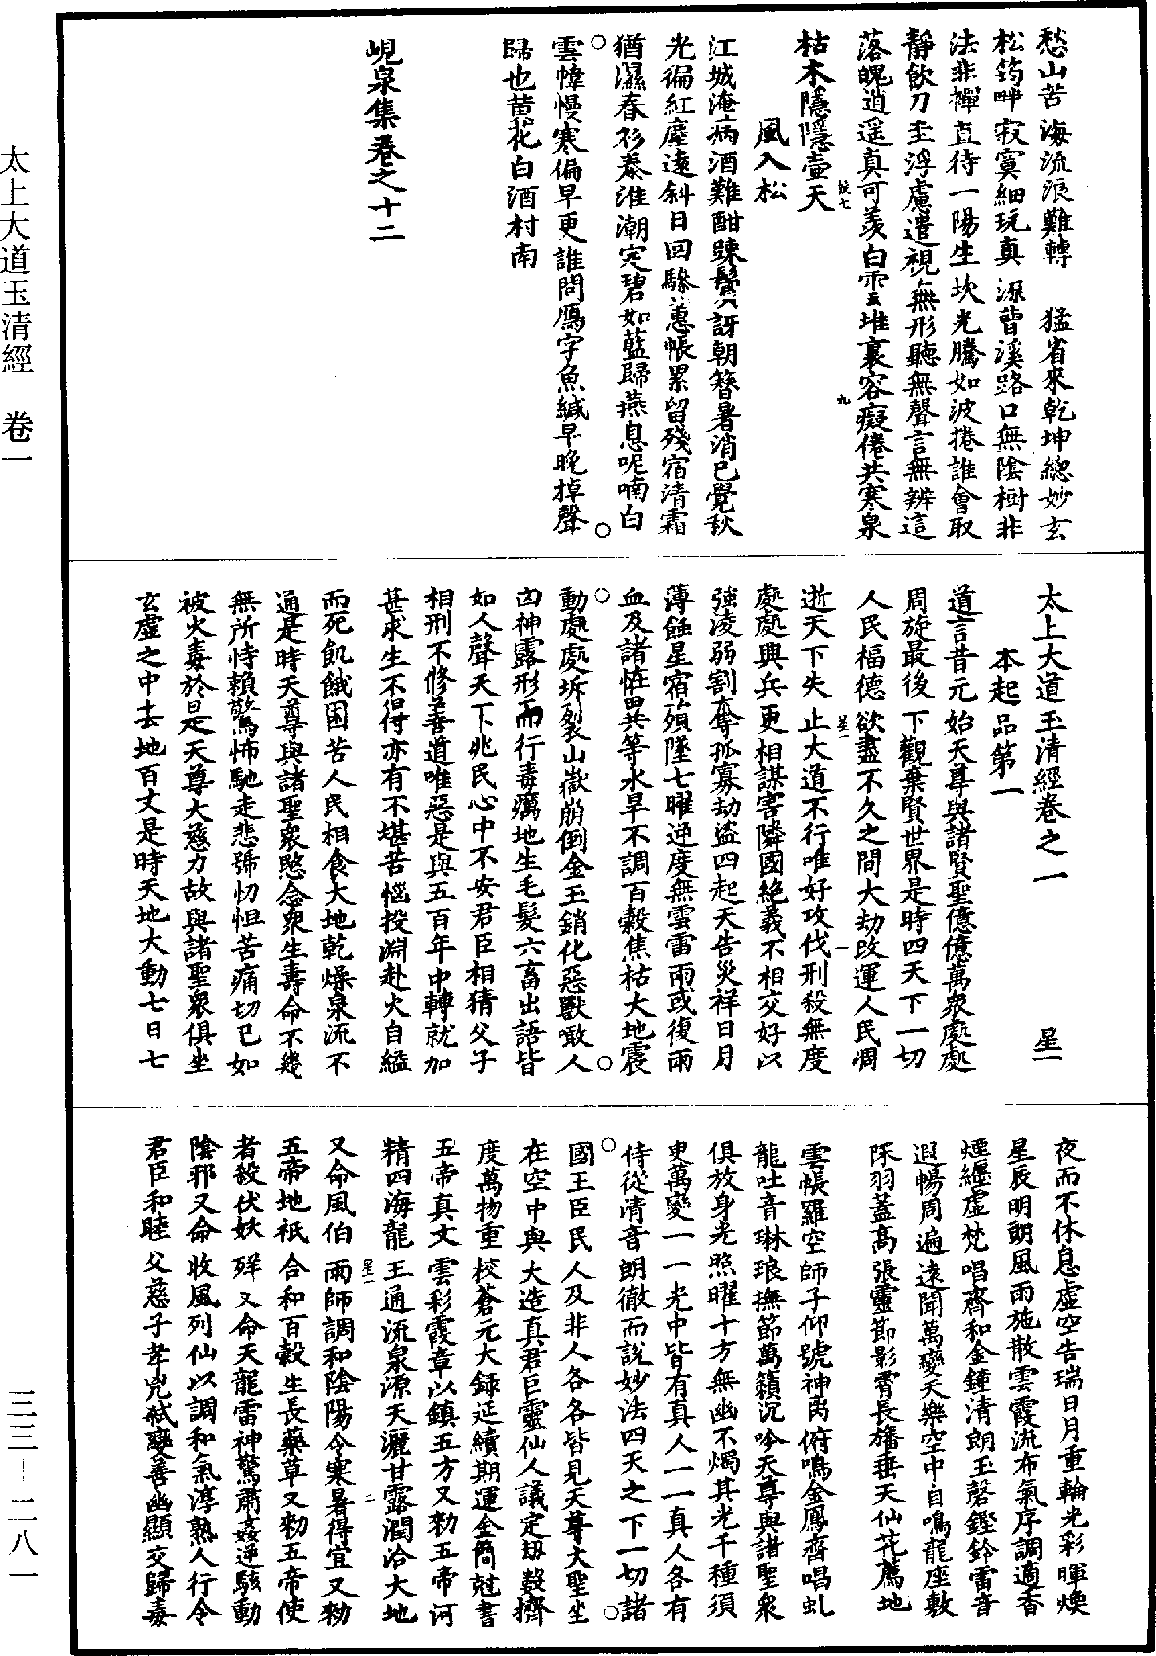 愁山苦海流浪難轉　猛省來乾坤總妙玄
松筠畔寂寞細玩真源曹溪路口無陰樹非
法非禪直待一陽生坎光騰如波捲誰會取
靜飲刀圭浮慮遣視無形聽無聲言無辨這
落魄逍遥真可羨白雲堆裏容癡倦共寒泉
枯木隱隱壺天
風入松
江城淹病酒難酣踈鬢訝朝簪暑消已覺秋
光徧紅塵遠斜日回驂蕙帳累留殘宿清霜
猶濕春衫秦淮潮定碧如藍歸燕息呢喃白
雲幃慢寒偏早更誰問鴈字魚緘早晚掉聲
歸也黄花白酒村南
峴泉集卷之十二
太上大道玉清經卷之一　星一
本起品第一
道言昔元始天尊與諸賢聖億億萬衆處處
周旋最後下觀棄賢世界是時四天下一切
人民福德欲盡不久之間大劫改運人民凋
逝天下失止大道不行唯好攻伐刑殺無度
處處興兵更相謀害隣國絶義不相交好以
強凌弱割奪孤寡劫盜四起天告災祥日月
薄蝕星宿殞墜七曜逆度無雲雷雨或復雨
血及諸恠異等水旱不調百穀焦枯大地震
動處處坼裂山嶽崩倒金玉銷化惡獸噉人
凶神露形而行毒癘地生毛髮六畜出語皆
如人聲天下兆民心中不安君臣相猜父子
相刑不修善道唯惡是與五百年中轉就加
甚求生不得亦有不堪苦惱投淵赴火自縊
而死飢餓困苦人民相食大地乾燥泉流不
通是時天尊與諸聖衆愍念衆生壽命不幾
無所恃賴驚怖馳走悲號忉怛苦痛切已如
被火毒於是天尊大慈力故與諸聖衆俱坐
玄虛之中去地百丈是時天地大動七日七
夜而不休息虚空告瑞日月重輪光彩暉煥
星辰明朗風雨施散雲霞流布氣序調適香
煙纏虚梵唱齊和金鍾清朗玉磬鏗鈴雷音
遐暢周遍遠聞萬變天樂空中自鳴龍座敷
陈羽蓋高張靈節影霄長旛垂天仙花薦地
雲帳羅空師子仰號神禹俯鳴金鳳齊唱虬
龍吐音琳琅撫節萬籟沉吟天尊與諸聖衆
俱放身光照曜十方無幽不燭其光千種須
臾萬變一一光中皆有真人一一真人各有
侍從清音朗徹而說妙法四天之下一切諸
國王臣民人及非人各各皆見天尊大聖坐
在空中與大造真君巨靈仙人議定劫數擠
度萬物重校蒼元大録延續期運金簡尅書
五帝真文雲彩霞章以鎮五方又勑五帝河
精四海龍王通流泉源天灑甘露潤洽大地
又命風伯雨師調和陰陽令寒暑得宜又勑
五帝地衹合和百穀生長藥草又勑五帝使
者殺伏妖殍又命天龍雷神驚肅姦逆駭動
陰邪又命收風列仙以調和氣淳熟人行令
君臣和睦父慈子孝兇弒變善幽顯交歸毒
太上大道玉清經　卷一
三三—二八一